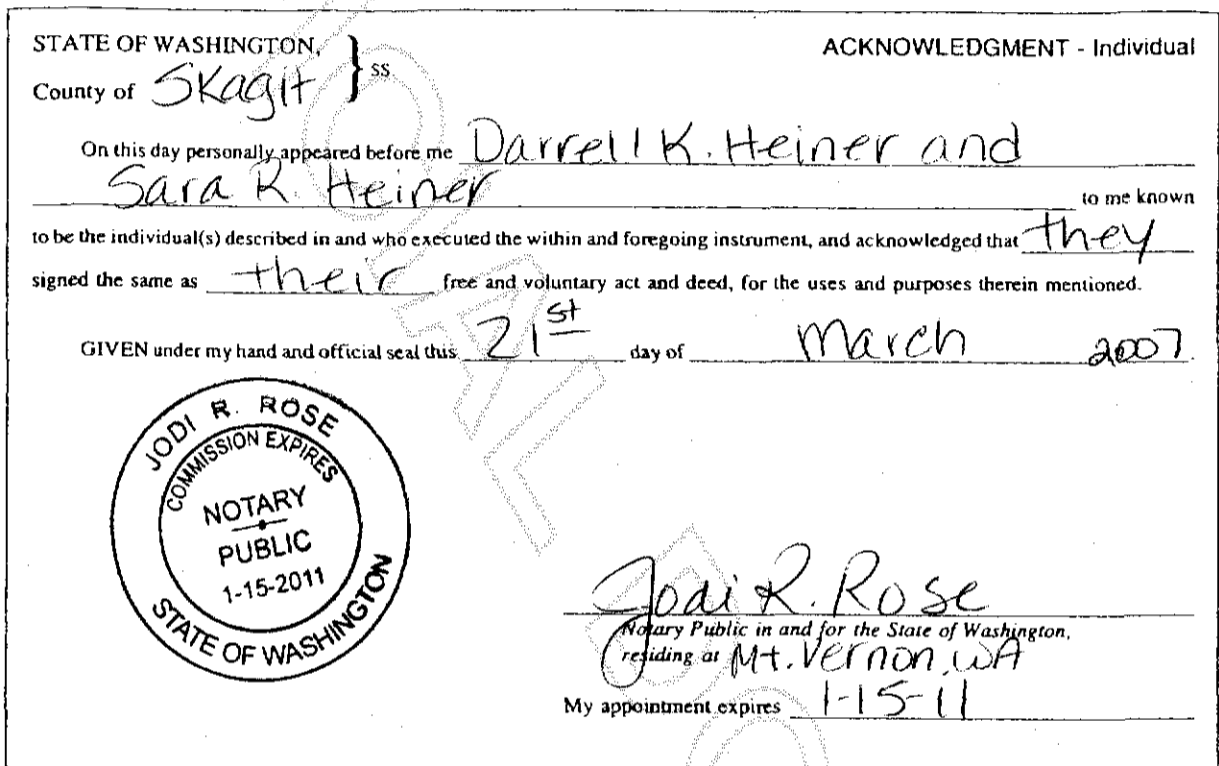 STATE OF WASHINGTON, } ss ACKNOWLEDGMENT - Individual
County of Skagit
On this day personally appeared before me Darrell K. Heiner and
Sara R. Heiner to me known
to be the individual(s) described in and who executed the within and foregoing instrument, and acknowledged that they
signed the same as their free and voluntary act and deed, for the uses and purposes therein mentioned.
GIVEN under my hand and official seal this 21st day of March 2007.
JODI R. ROSE
COMMISSION EXPIRES
NOTARY
PUBLIC
1-15-2011
STATE OF WASHINGTON
Jodi R. Rose
Notary Public in and for the State of Washington,
residing at Mt. Vernon, WA
My appointment expires 1-15-11